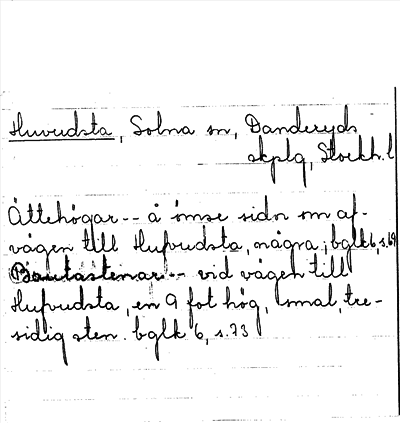 Huvudsta, Solna sn, Danderyds
skplg, Stockh. l
Ättehögar -- å ömse sidor om af-
vägen till Hufvudsta, några; bglk 6, s. 69
Bautastenar -- vid vägen till
Hufvudsta, en 9 fot hög, smal, tre-
sidig sten. bglk 6, s. 73